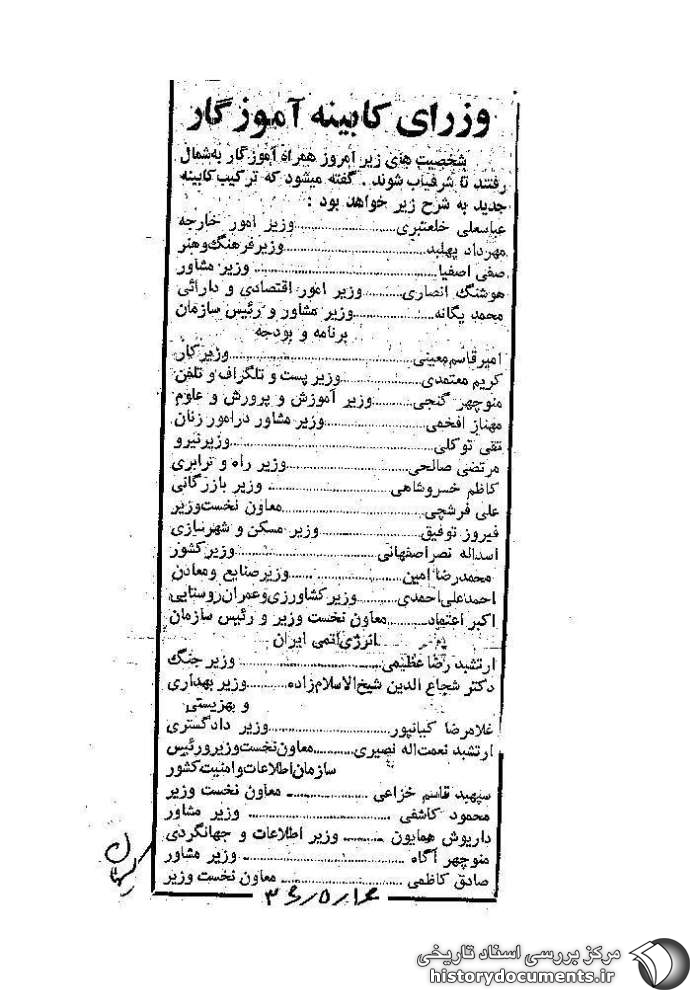 وزرای کابینه آموزگار
شخصیت های زیر امروز همراه آموزگار به شمال
رفتند تا شرفیاب شوند. گفته میشود که ترکیب کابینه
جدید به شرح زیر خواهد بود :
عباسعلی خلعتبری......................وزیر امور خارجه
مهرداد پهلبد......................وزیر فرهنگ و هنر
صفی اصفیا...................... وزیر مشاور
هوشنگ انصاری..........وزیر امور اقتصادی و دارائی
محمد یگانه..................وزیر مشاور و رئیس سازمان
برنامه و بودجه
امیر قاسم معینی......................وزیر کار
کریم معتمدی..................وزیر پست و تلگراف و تلفن
منوچهر گنجی..........وزیر آموزش و پرورش و علوم
مهناز افخمی..................وزیر مشاور در امور زنان
تقی توکلی......................وزیر نیرو
مرتضی صالحی......................وزیر راه و ترابری
کاظم خسروشاهی...................... وزیر بازرگانی
علی فرشچی......................معاون نخست وزیر
فیروز توفیق.................. وزیر مسکن و شهرسازی
اسداله نصر اصفهانی......................وزیر کشور
محمدرضا امین..................وزیر صنایع و معادن
احمدعلی احمدی..........وزیر کشاورزی و عمران روستایی
اکبر اعتماد..........معاون نخست وزیر و رئیس سازمان
انرژی اتمی ایران
ارتشبد رضا عظیمی...................... وزیر جنگ
دکتر شجاع الدین شیخ الاسلام زاده..........وزیر بهداری
و بهزیستی
غلامرضا کیانپور......................وزیر دادگستری
ارتشبد نعمت اله نصیری..........معاون نخست وزیر و رئیس
سازمان اطلاعات و امنیت کشور
سپهبد قاسم خزاعی .................. معاون نخست وزیر
محمود کاشفی ...................... وزیر مشاور
داریوش همایون .......... وزیر اطلاعات و جهانگردی
منوچهر آگاه...................... وزیر مشاور
صادق کاظمی ...................... معاون نخست وزیر
کیهان
مرکز بررسی اسناد تاریخی
historydocuments.ir